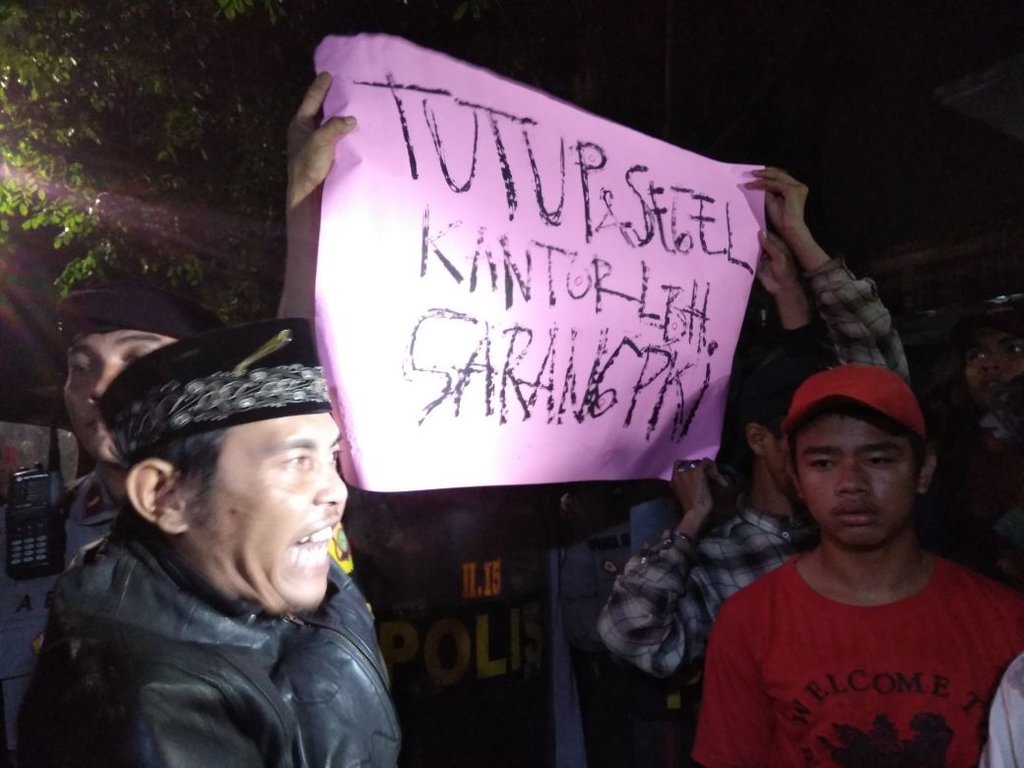 TUTUP & SEGEL
KANTOR LBH.
SARANG PKI
II.15
POLIS
WELCOME T